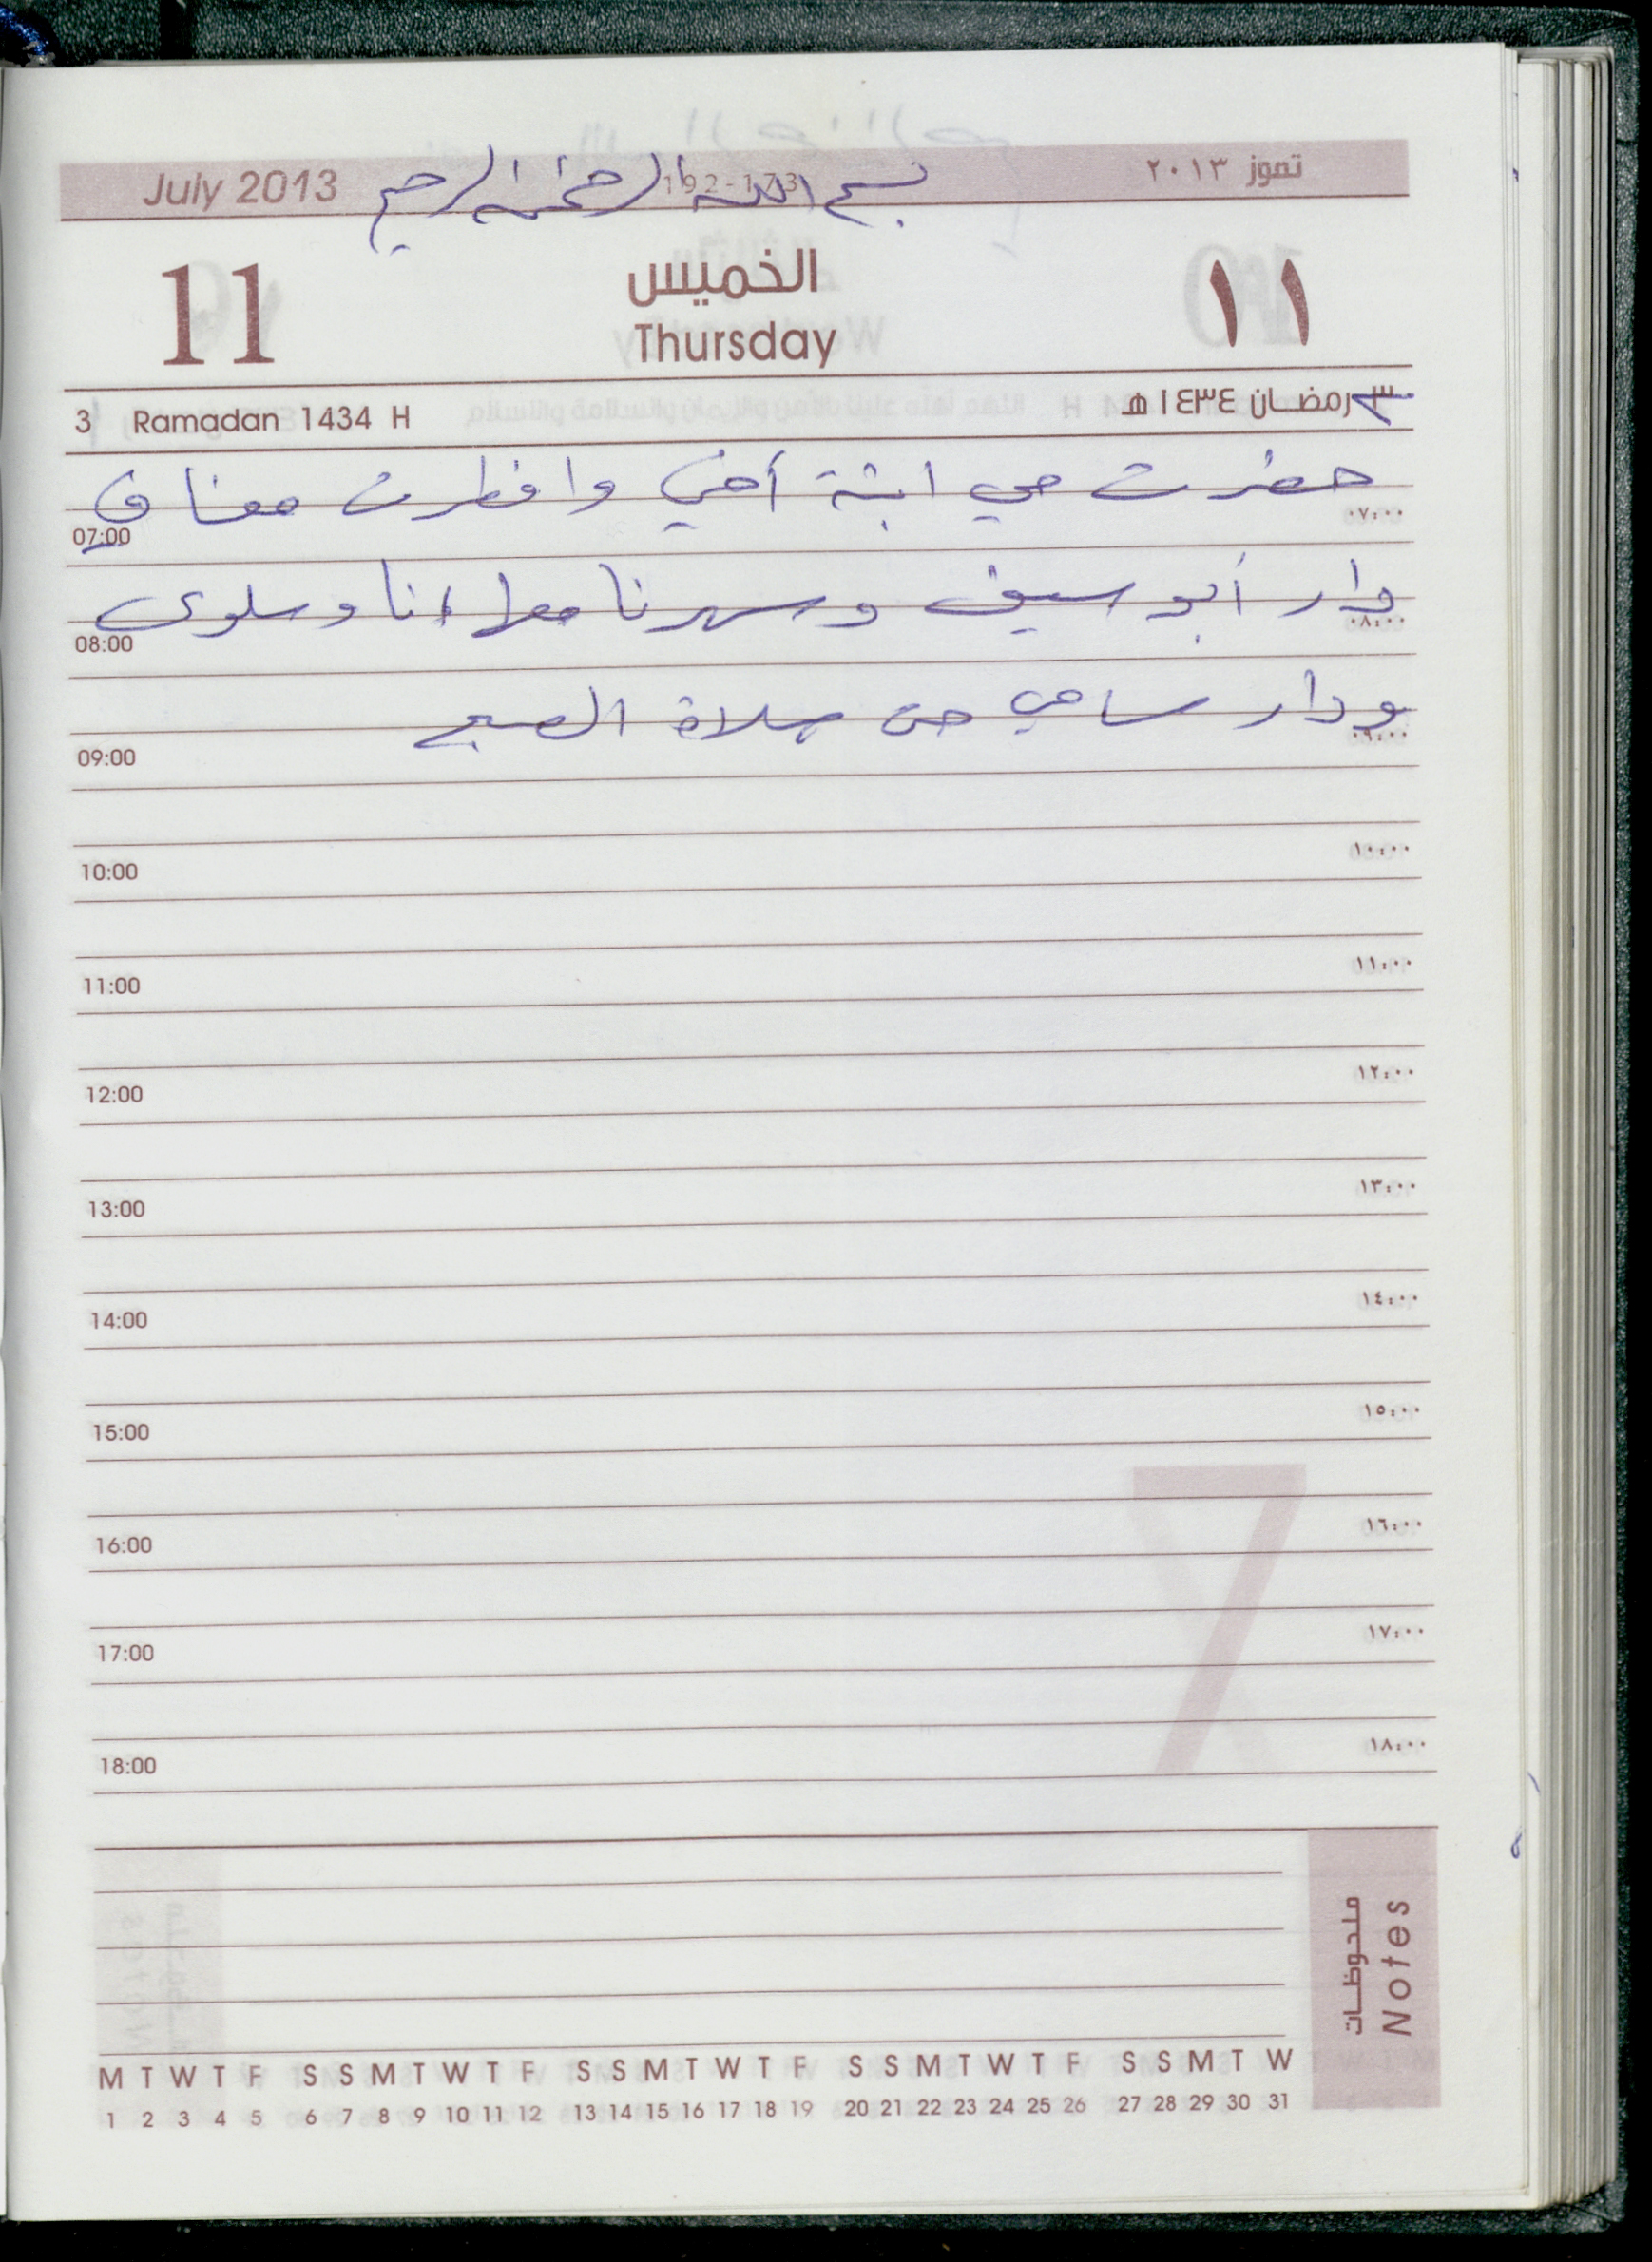 July 2013 بسم الله الرحمن الرحيم 192-173 تموز ٢٠١٣
11 الخميس ١١
Thursday
3 Ramadan 1434 H رمضان ١٤٣٤ هـ
حضرت مي ابنة أخي وافطرت معنا في
07:00 ٠٧:٠٠
دار أبو سيف وسهرنا معا انا وسلوى
08:00 ٠٨:٠٠
ودار سامي حتى صلاة الصبح
09:00 ٠٩:٠٠
10:00 ١٠:٠٠
11:00 ١١:٠٠
12:00 ١٢:٠٠
13:00 ١٣:٠٠
14:00 ١٤:٠٠
15:00 ١٥:٠٠
16:00 ١٦:٠٠
17:00 ١٧:٠٠
18:00 ١٨:٠٠
7
ملحوظات
Notes
M T W T F S S M T W T F S S M T W T F S S M T W T F S S M T W
1 2 3 4 5 6 7 8 9 10 11 12 13 14 15 16 17 18 19 20 21 22 23 24 25 26 27 28 29 30 31